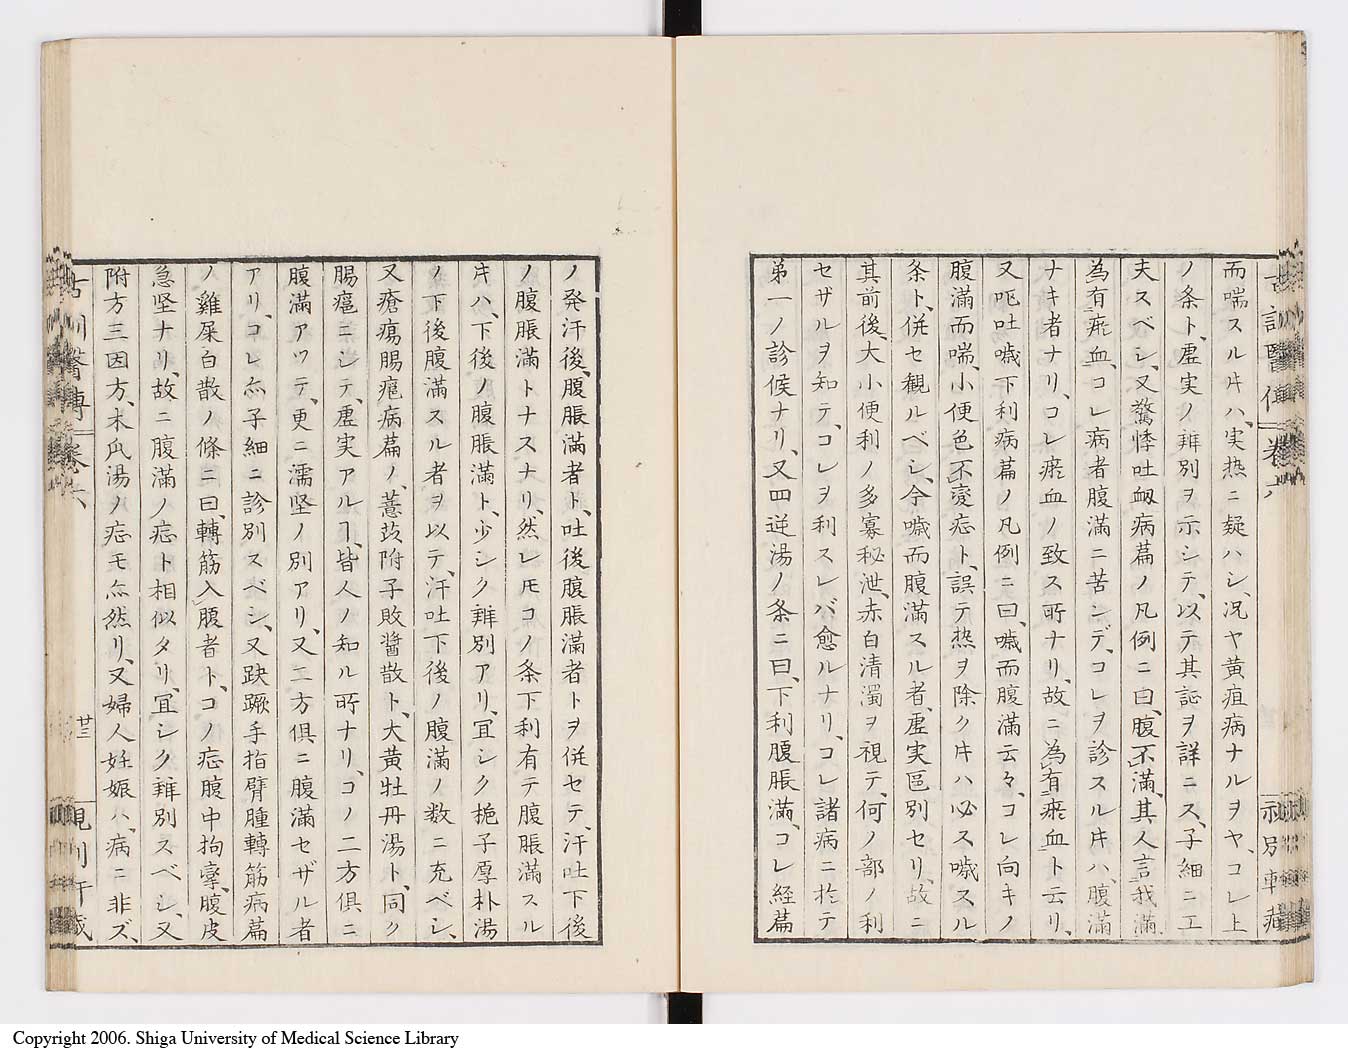 而喘スル𪜈ハ、実熱ニ疑ハシ、况ヤ黄疸病ナルヲヤ、コレ上
ノ条ト、虚実ノ辨別ヲ示シテ、以テ其証ヲ詳ニス、子細ニ工
夫スベシ、又驚悸吐衂病篇ノ凡例ニ曰、腹不満、其人言我満
為有瘀血、コレ病者腹満ニ苦ンデ、コレヲ診スル𪜈ハ、腹満
ナキ者ナリ、コレ瘀血ノ致ス所ナリ、故ニ為有瘀血ト云リ、
又呕吐噦下利病篇ノ凡例ニ曰、噦而腹満云々、コレ向キノ
腹満而喘、小便色不変症ト、誤テ熱ヲ除ク𪜈ハ必ス噦スル
条ト、併セ観ルベシ、今噦而腹満スル者、虚実区別セリ、故ニ
其前後、大小便利ノ多寡秘泄、赤白清濁ヲ視テ、何ノ部ノ利
セザルヲ知テ、コレヲ利スレバ愈ルナリ、コレ諸病ニ於テ
第一ノ診候ナリ、又四逆湯ノ条ニ曰、下利腹脹満、コレ経篇
ノ発汗後、腹脹満者ト、吐後腹脹満者トヲ併セテ、汗吐下後
ノ腹脹満トナスナリ、然レ𪜈コノ条下利有テ腹脹満スル
𪜈ハ、下後ノ腹脹満ト、少シク辨別アリ、冝シク梔子厚朴湯
ノ下後腹満スル者ヲ以テ、汗吐下後ノ腹満ノ数ニ充ベシ、
又瘡瘍腸癰病篇ノ、薏苡附子敗醤散ト、大黄牡丹湯ト、同ク
腸癰ニシテ、虚実アルヿ、皆人ノ知ル所ナリ、コノ二方俱ニ
腹満アツテ、更ニ濡坚ノ別アリ、又二方俱ニ腹満セザル者
アリ、コレ亦子細ニ診別スベシ、又趺蹶手指臂腫轉筋病篇
ノ雞屎白散ノ條ニ曰、轉筋入腹者ト、コノ症腹中拘攣、腹皮
急坚ナリ、故ニ腹満ノ症ト相似タリ、冝シク辨別スベシ、又
附方三因方、木瓜湯ノ症モ亦然リ、又婦人妊娠ハ、病ニ非ズ、
廿三